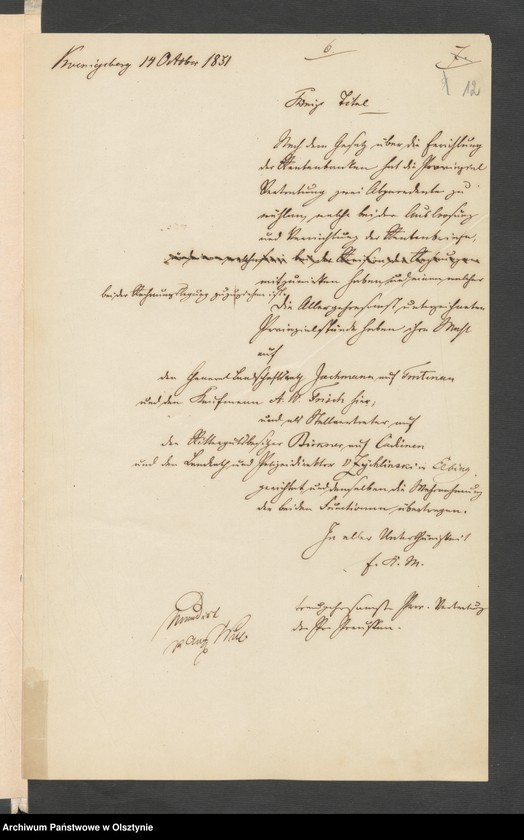 6
7.
12
Koenigsberg 14 October 1851
Königs Titel
Nach dem Gesetz über die Errichtung
der Rentenbanken hat die Provinzial
Vertretung zwei Abgeordnete zu
wählen, welche bei der Ausloosung
und Vernichtung der Rentenbriefe,
mitzuwirken haben, und einen, welcher
bei der Rechnungslegung zuzuziehen ist.
Die Allergehorsamst unterzeichneten
Provinzialstände haben ihre Wahl
auf
den General Landschaftsrath Jachmann auf Trutenau
und den Kaufmann A. W. Frisch hier,
und als Stellvertreter auf
den Rittergutsbesitzer Birkner auf Cadinen
und den Landrath und Polizeidirektor v Zychlinski in Elbing
gerichtet und denselben die Wahrnehmung
der beiden Functionen übertragen.
In aller Unterthänigkeit
E. K. M.
treugehorsamste Prov. Vertretung
der Pr. Preußen.